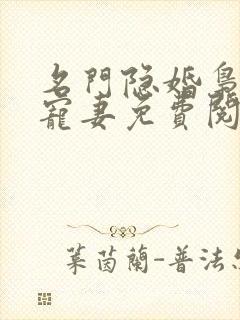 名門隐婚枭
寵妻免費閱
葉茵蘭-普法